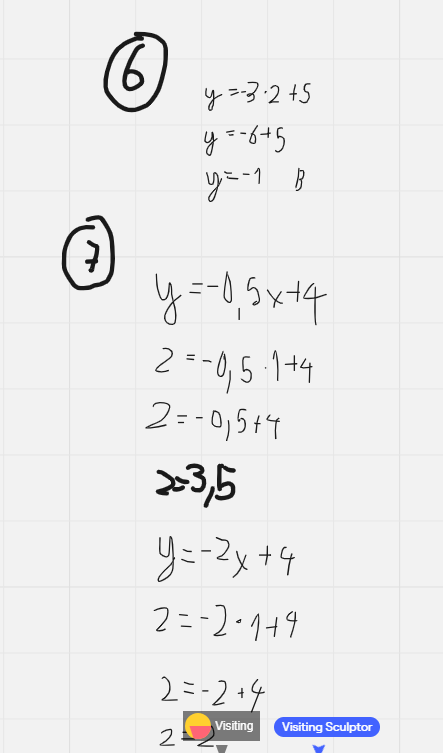 6
y=-3·2+5
y=-6+5
y=-1 B
7
y=-0,5x+4
2=-0,5·1+4
2=-0,5+4
2=3,5
y=-2x+4
2=-2·1+4
2=-2+4
2=2
Visiting
Visiting Sculptor